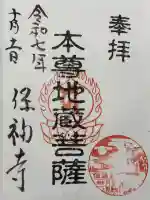 奉拝
本尊地蔵菩薩
令和七年
十月吉日
保福寺